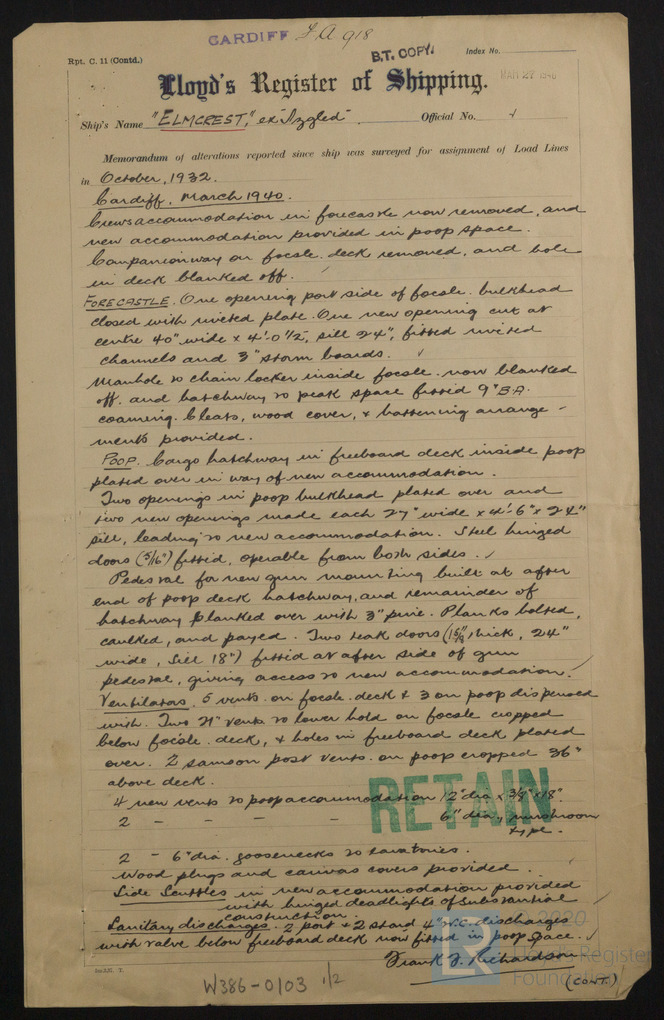 CARDIFF F.A 918
Rpt. C. 11 (Contd.)
B.T. COPY.
Index No.
MAR 27 1940
Lloyd's Register of Shipping.
Ship's Name "ELMCREST," ex "Izgled" Official No.
Memorandum of alterations reported since ship was surveyed for assignment of Load Lines
in October, 1932.
Cardiff, March 1940.
Crews accommodation in forecastle now removed, and
new accommodation provided in poop space.
Companionway on focsle. deck removed, and hole
in deck blanked off.
FORECASTLE. One opening port side of focsle. bulkhead
closed with riveted plate. One new opening cut at
centre 40" wide x 4'-0½", sill 24", fitted riveted
channels and 3" storm boards.
Manhole to chain locker inside focsle. now blanked
off. and hatchway to peak space fitted 9" B.A.
coaming. Cleats, wood cover, & battening arrange-
ments provided.
POOP. Cargo hatchway in freeboard deck inside poop
plated over in way of new accommodation.
Two openings in poop bulkhead plated over and
two new openings made each 27" wide x 4'-6" x 24"
sill, leading to new accommodation. Steel hinged
doors (5/16") fitted, operable from both sides.
Pedestal for new gun mounting built at after
end of poop deck hatchway, and remainder of
hatchway planked over with 3" pine. Planks bolted,
caulked, and payed. Two teak doors ( thick, 24"
wide, sill 18") fitted at after side of gun
pedestal, giving access to new accommodation.
Ventilators. 5 vents. on focsle. deck & 3 on poop dispensed
with. Two 21" vents to lower hold on focsle cropped
below focsle. deck, & holes in freeboard deck plated
over. 2 samson post vents. on poop cropped 36"
above deck.
4 new vents to poop accommodation 12" dia x 3/8" x 18"
2 - - - - 6" dia, mushroom
type.
2 - 6" dia. goosenecks to lavatories.
Wood plugs and canvas covers provided.
Side Scuttles in new accommodation provided
with hinged deadlights of substantial
construction.
Sanitary discharges. 2 port & 2 starbd 4" W.C. discharges
with valve below freeboard deck now fitted in poop space.
Frank J. Richardson
(CONT.)
RETAIN
W386-0103 1/2
LR
2020
Lloyd's Register
Foundation